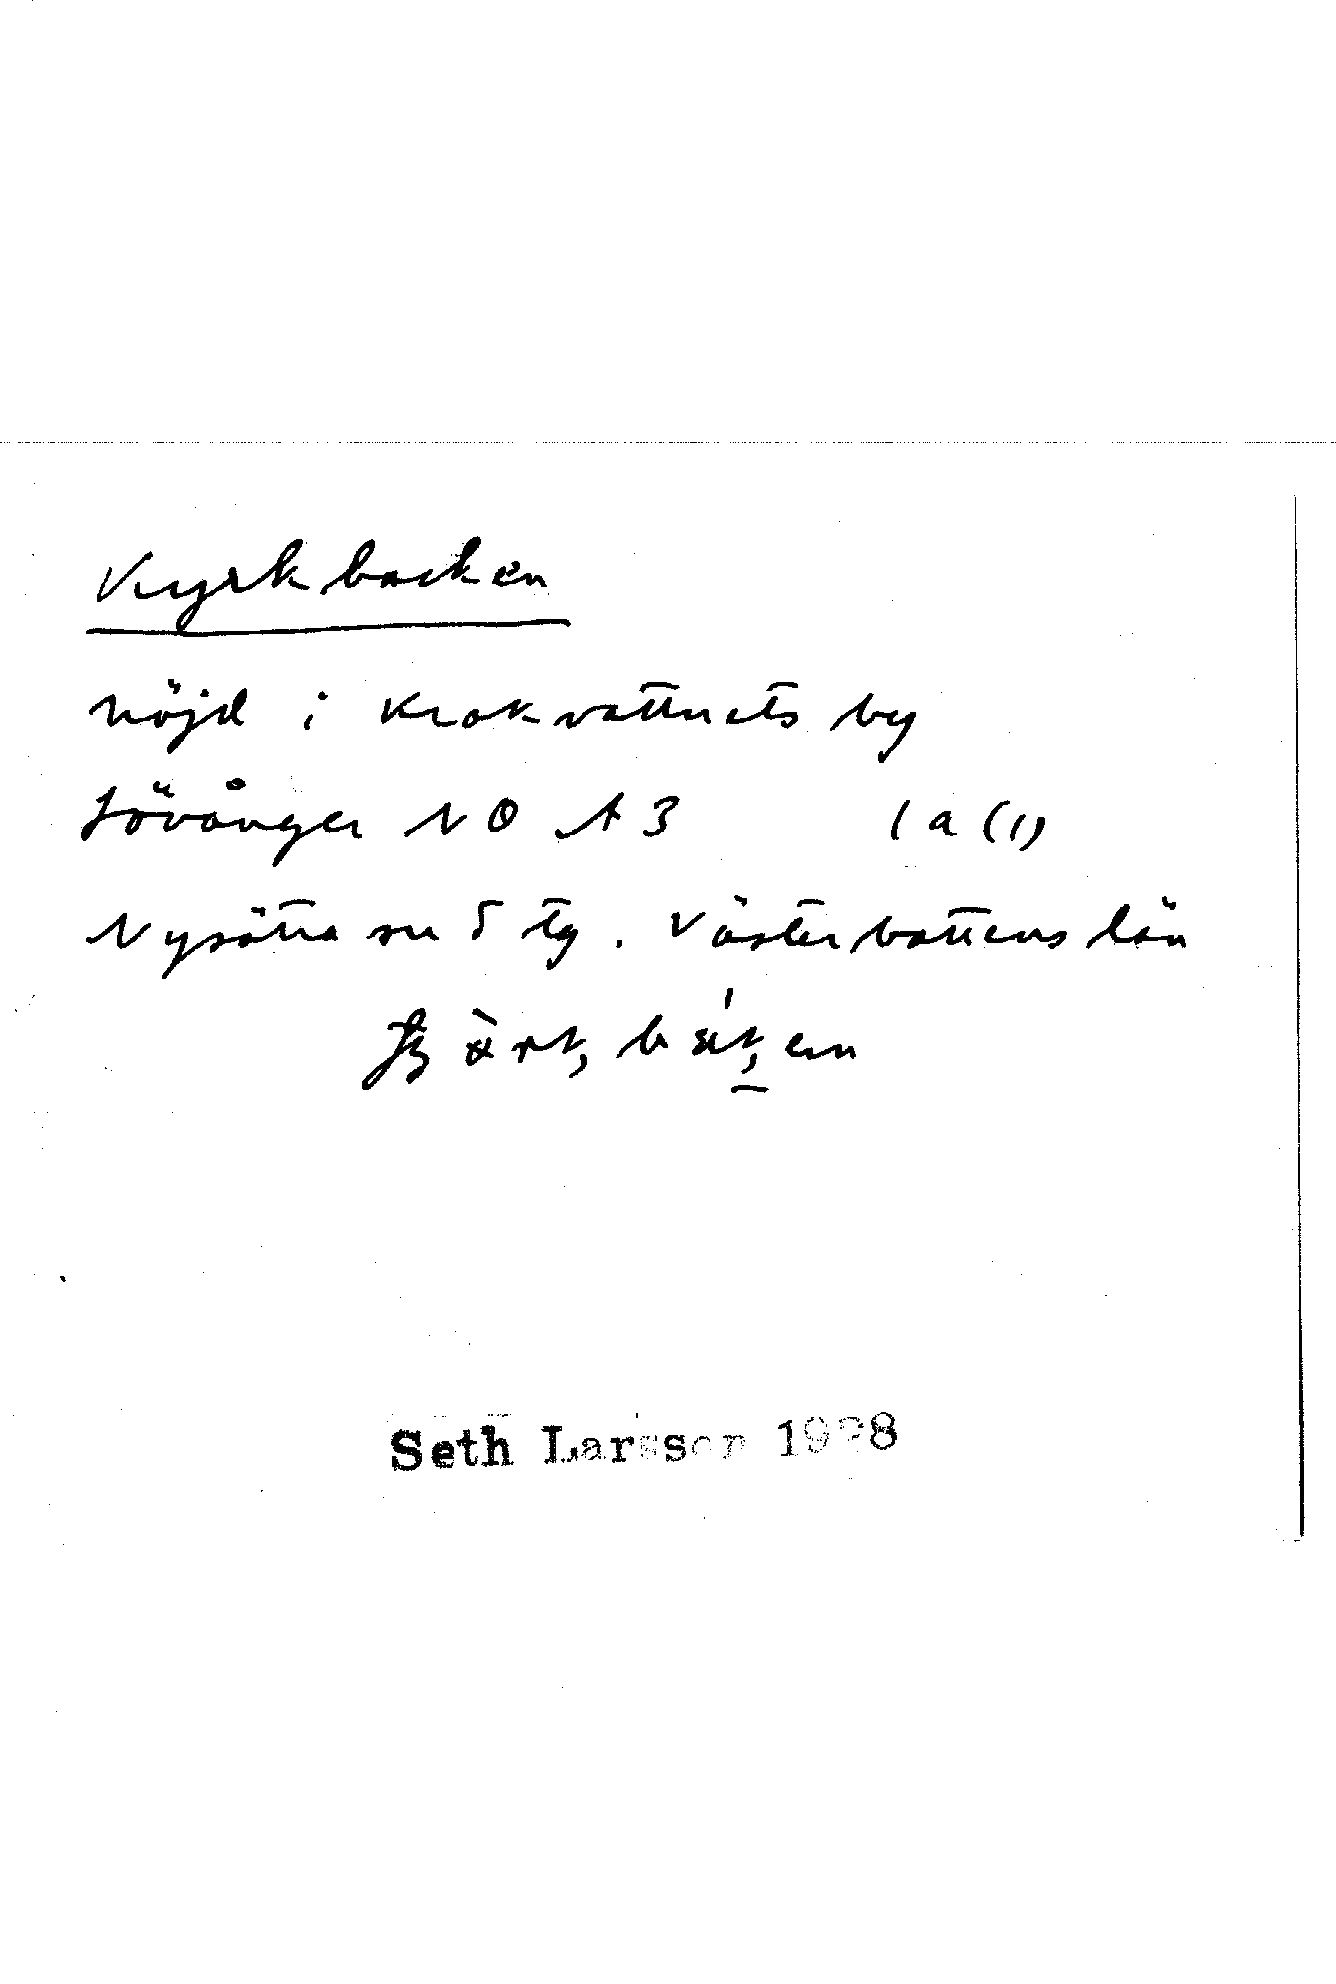 Kyrkbacken
höjd i Krokvattnets by
Lövånger NO A3 1a(1)
Nysätra sn S tg. Västerbottens län
Seth Larsson 19 8